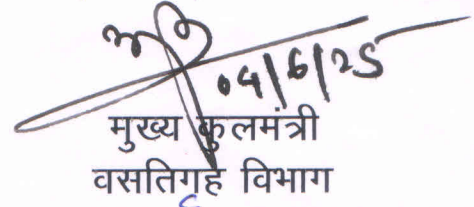 04/6/25
मुख्य कुलमंत्री
वसतिगृह विभाग